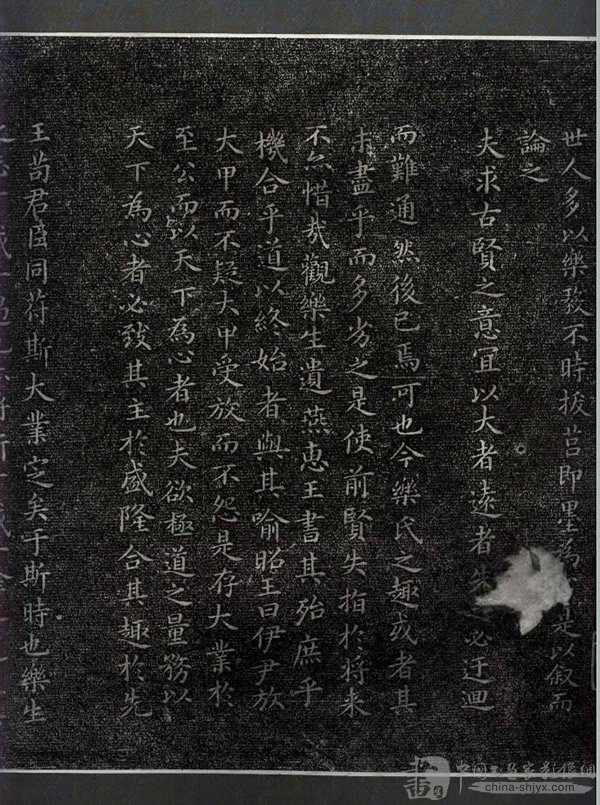 世人多以樂毅不時拔莒即墨為 是以叙而
論之
夫求古賢之意宜以大者遠者先之必迂迴
而難通然後已焉可也今樂氏之趣或者其
未盡乎而多劣之是使前賢失指於将来
不亦惜哉觀樂生遺燕惠王書其殆庶乎
機合乎道以終始者與其喻昭王曰伊尹放
大甲而不疑大甲受放而不怨是存大業於
至公而以天下為心者也夫欲極道之量務以
天下為心者必致其主於盛隆合其趣於先
王苟君臣同苻斯大業定矣于斯時也樂生
中国书画家影像網
china-shjyx.com